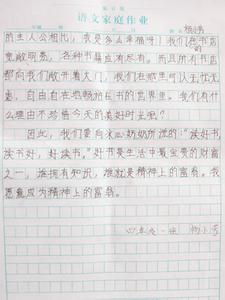 语文家庭作业
的主人公相比，我是多么幸福呀！我们在书店
宽敞明亮，各种书籍应有尽有。而且所有书店
都向我们敞开着大门，我们在那里可以无忧无
虑，自由自在地畅游在书的世界里。我们有什
么理由不珍惜今天的美好时光呢？
因此，我们要向冰心奶奶所说的：“读好书，
读书好，好读书。”好书是生活中最宝贵的财富
之一，谁拥有知识，谁就是精神上的富翁。我
愿意成为精神上的富翁。